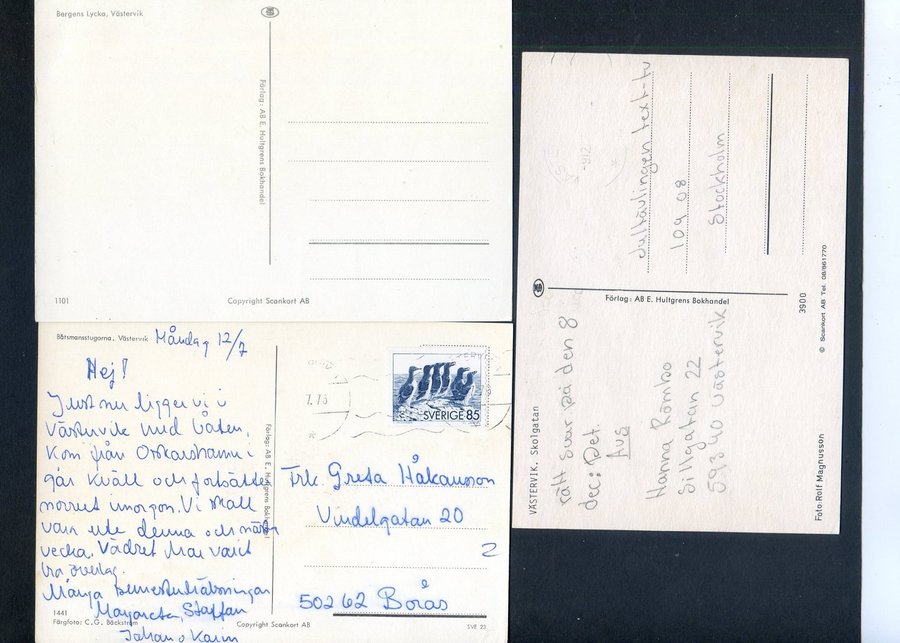 Bergens Lycka, Västervik
Förlag: AB E. Hultgrens Bokhandel
1101
Copyright Scankort AB
Båtsmansstugorna, Västervik
Måndag 12/7
Hej!
Just nu ligger vi i
Västervik med båten.
Kom från Oskarshamn i
går kväll och fortsätter
norrut imorgon. Vi skall
vara ute denna och nästa
vecka. Vädret har varit
bra överlag.
Många semesterhälsningar
Margareta, Staffan
Johan o Karin
1441
Färgfoto: C.G. Bäckström
Förlag: AB E. Hultgrens Bokhandel
Copyright Scankort AB
7.76
SVERIGE 85
Frk. Greta Håkansson
Vindelgatan 20
2
502 62 Borås
SVE 23
VÄSTERVIK. Skolgatan
rätt svar på den 8
dec: Det
Aus
Hanna Römbo
Sillgatan 22
593 40 Västervik
Foto: Rolf Magnusson
Förlag: AB E. Hultgrens Bokhandel
3900
© Scankort AB Tel. 08/861770
-912
Jultävlingen text-tv
109 08
Stockholm